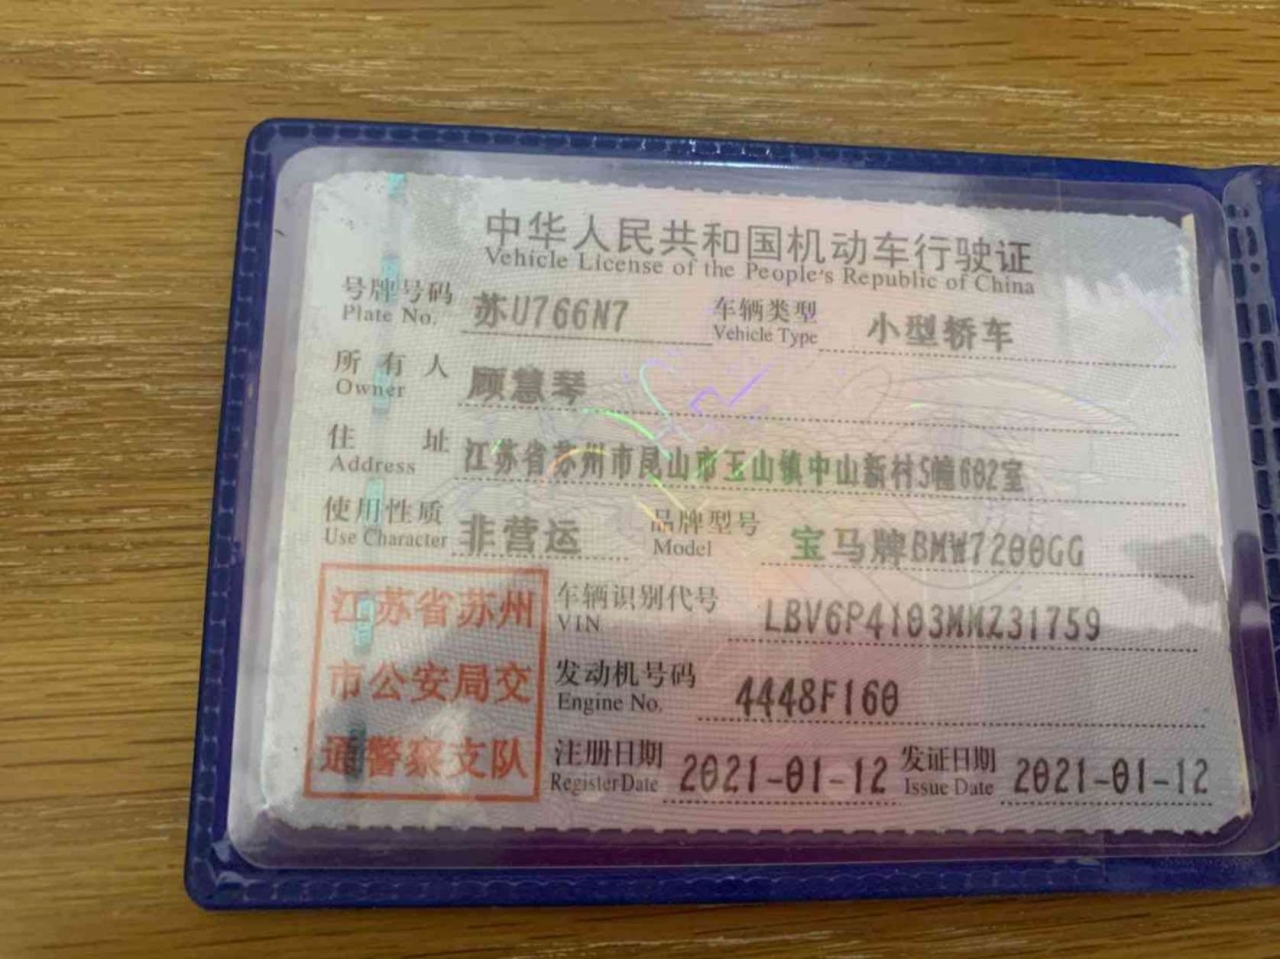 中华人民共和国机动车行驶证
Vehicle License of the People's Republic of China
号牌号码 苏U766N7 车辆类型 小型轿车
Plate No. Vehicle Type
所有人 顾慧琴
Owner
住址 江苏省苏州市昆山市玉山镇中山新村5幢602室
Address
使用性质 非营运 品牌型号 宝马牌BMW7200GG
Use Character Model
江苏省苏州
市公安局交
通警察支队
车辆识别代号 LBV6P4103MMZ31759
VIN
发动机号码 4448F160
Engine No.
注册日期 2021-01-12 发证日期 2021-01-12
Register Date Issue Date